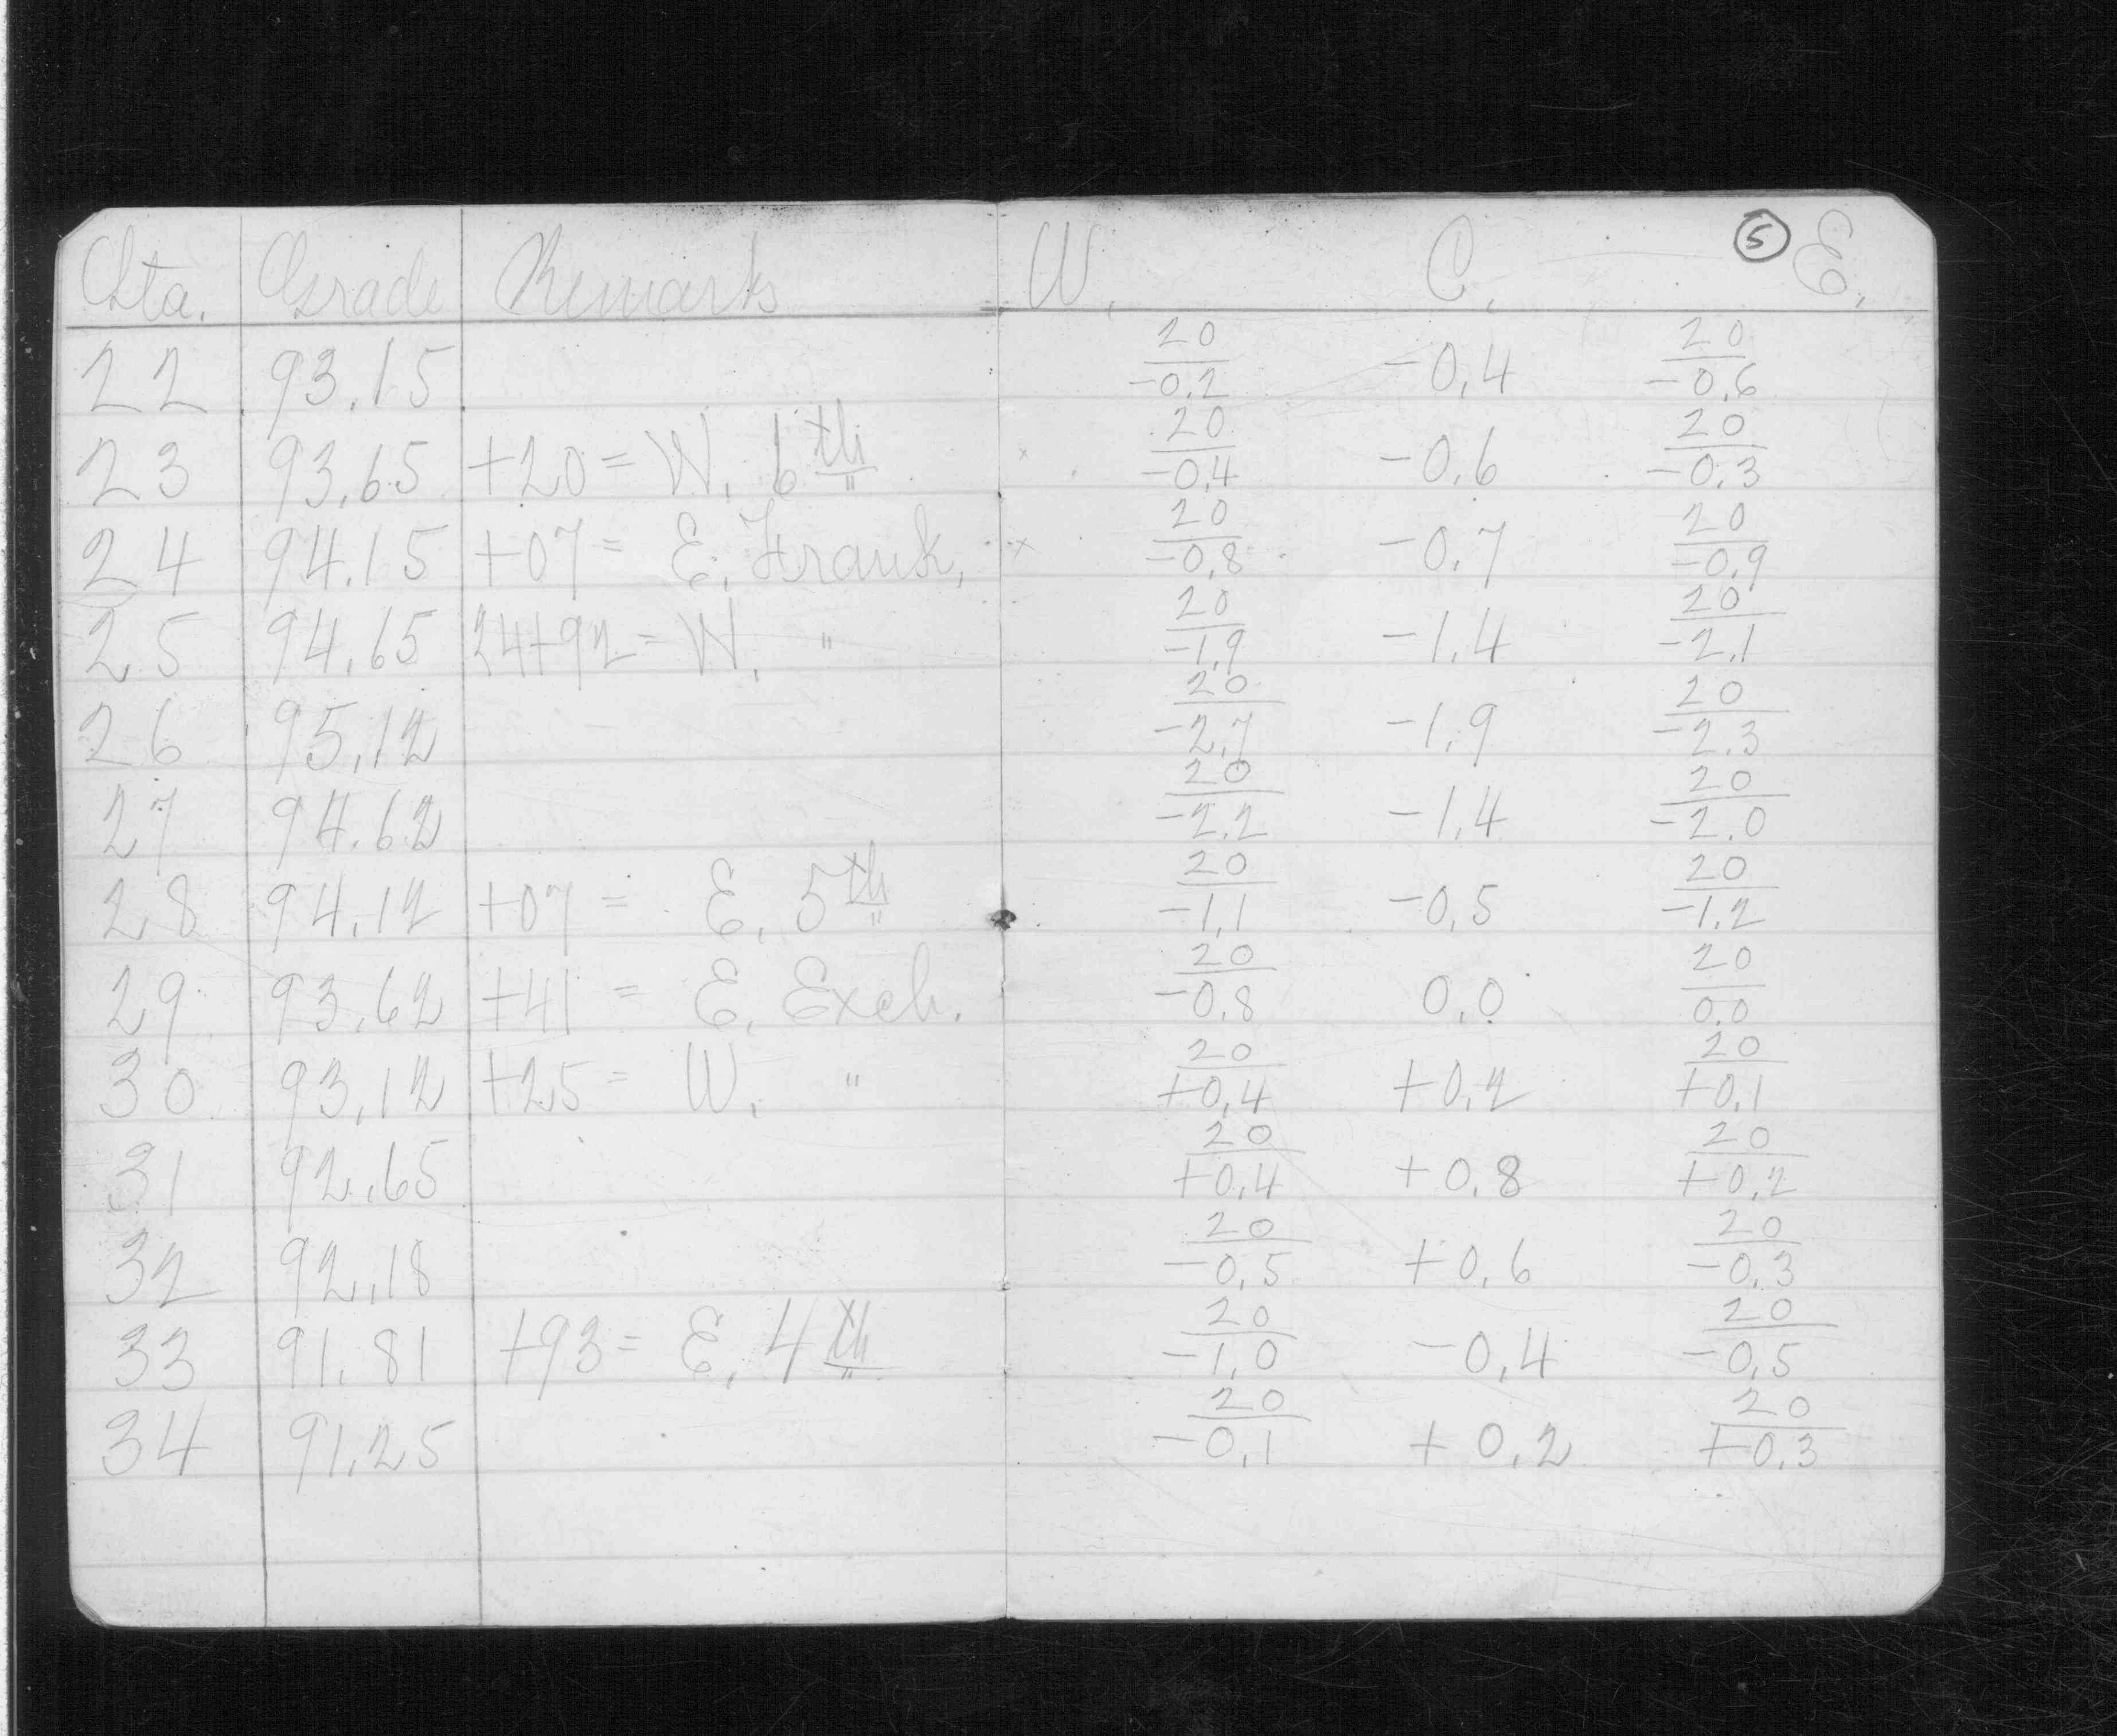 Sta. Grade Remarks W. C. 5 E.
22 93.15 20/-0.2 -0.4 20/-0.6
23 93.65 +20 = W. 6th " 20/-0.4 -0.6 20/-0.3
24 94.15 +07 = E. Frank, 20/-0.8 -0.7 20/-0.9
25 94.65 24+92 = W. " 20/-1.9 -1.4 20/-2.1
26 95.12 20/-2.7 -1.9 20/-2.3
27 94.62 20/-2.2 -1.4 20/-2.0
28 94.12 +07 = E. 5th " 20/-1.1 -0.5 20/-1.2
29 93.62 +41 = E. Exch. 20/-0.8 0.0 20/0.0
30 93.12 +25 = W. " 20/+0.4 +0.2 20/+0.1
31 92.65 20/+0.4 +0.8 20/+0.2
32 92.18 20/-0.5 +0.6 20/-0.3
33 91.81 +93 = E. 4th " 20/-1.0 -0.4 20/-0.5
34 91.25 20/-0.1 +0.2 20/+0.3